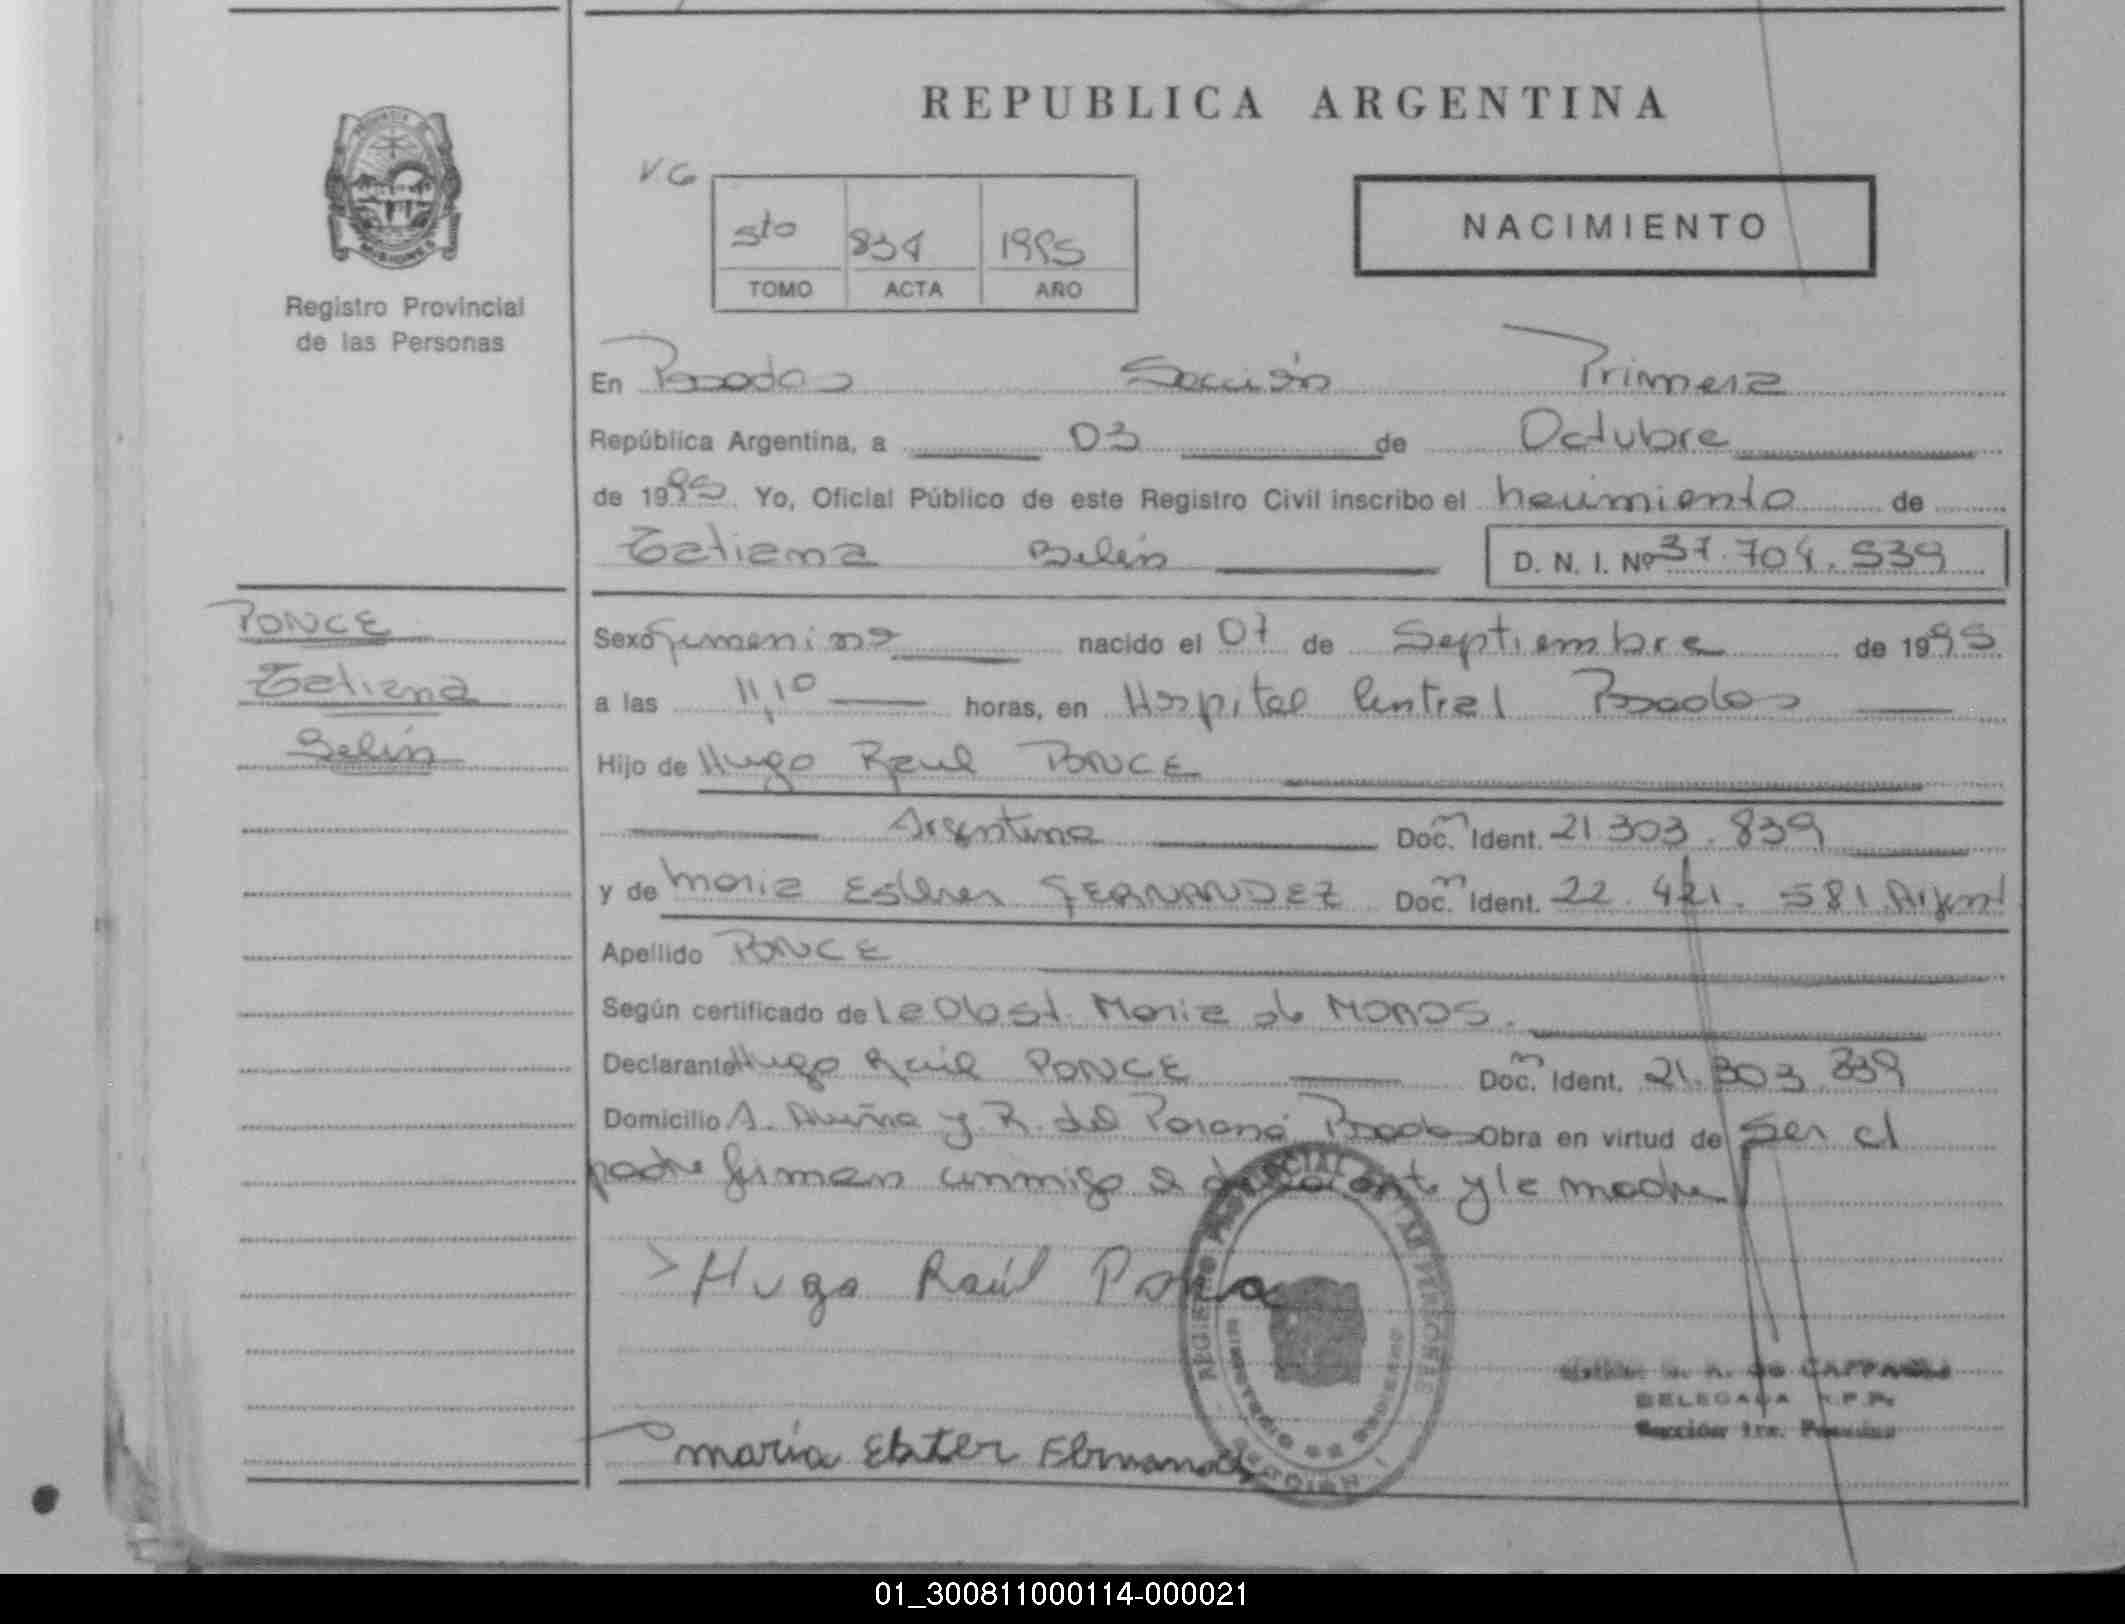 REPUBLICA ARGENTINA
VG
5to 834 1995
TOMO ACTA AÑO
NACIMIENTO
Registro Provincial
de las Personas
En Posadas Sección Primera
República Argentina, a 03 de Octubre
de 1995. Yo, Oficial Público de este Registro Civil inscribo el nacimiento de
Tatiana Belén D. N. I. Nº 37.704.539
PONCE
Tatiana
Belén
Sexo femenino nacido el 07 de Septiembre de 1995
a las 11,10 horas, en Hospital Central Posadas
Hijo de Hugo Raul PONCE
Argentina Doc. m Ident. 21.303.839
y de Maria Esther FERNANDEZ Doc. m Ident. 22.421.581 Argent
Apellido PONCE
Según certificado de la Obst. Maria de MOROS.
Declarante Hugo Raúl PONCE Doc. m Ident. 21.303.839
Domicilio A. y R. del Paraná Posadas Obra en virtud de ser el
padre firman conmigo el declarante y la madre
Hugo Raúl Ponce
REGISTRO PROVINCIAL DE LAS PERSONAS
MINISTERIO DE GOBIERNO
MISIONES
DELEGADA R.P.P.
Sección 1ra. Posadas
maria Ester Fernandez
01_300811000114-000021